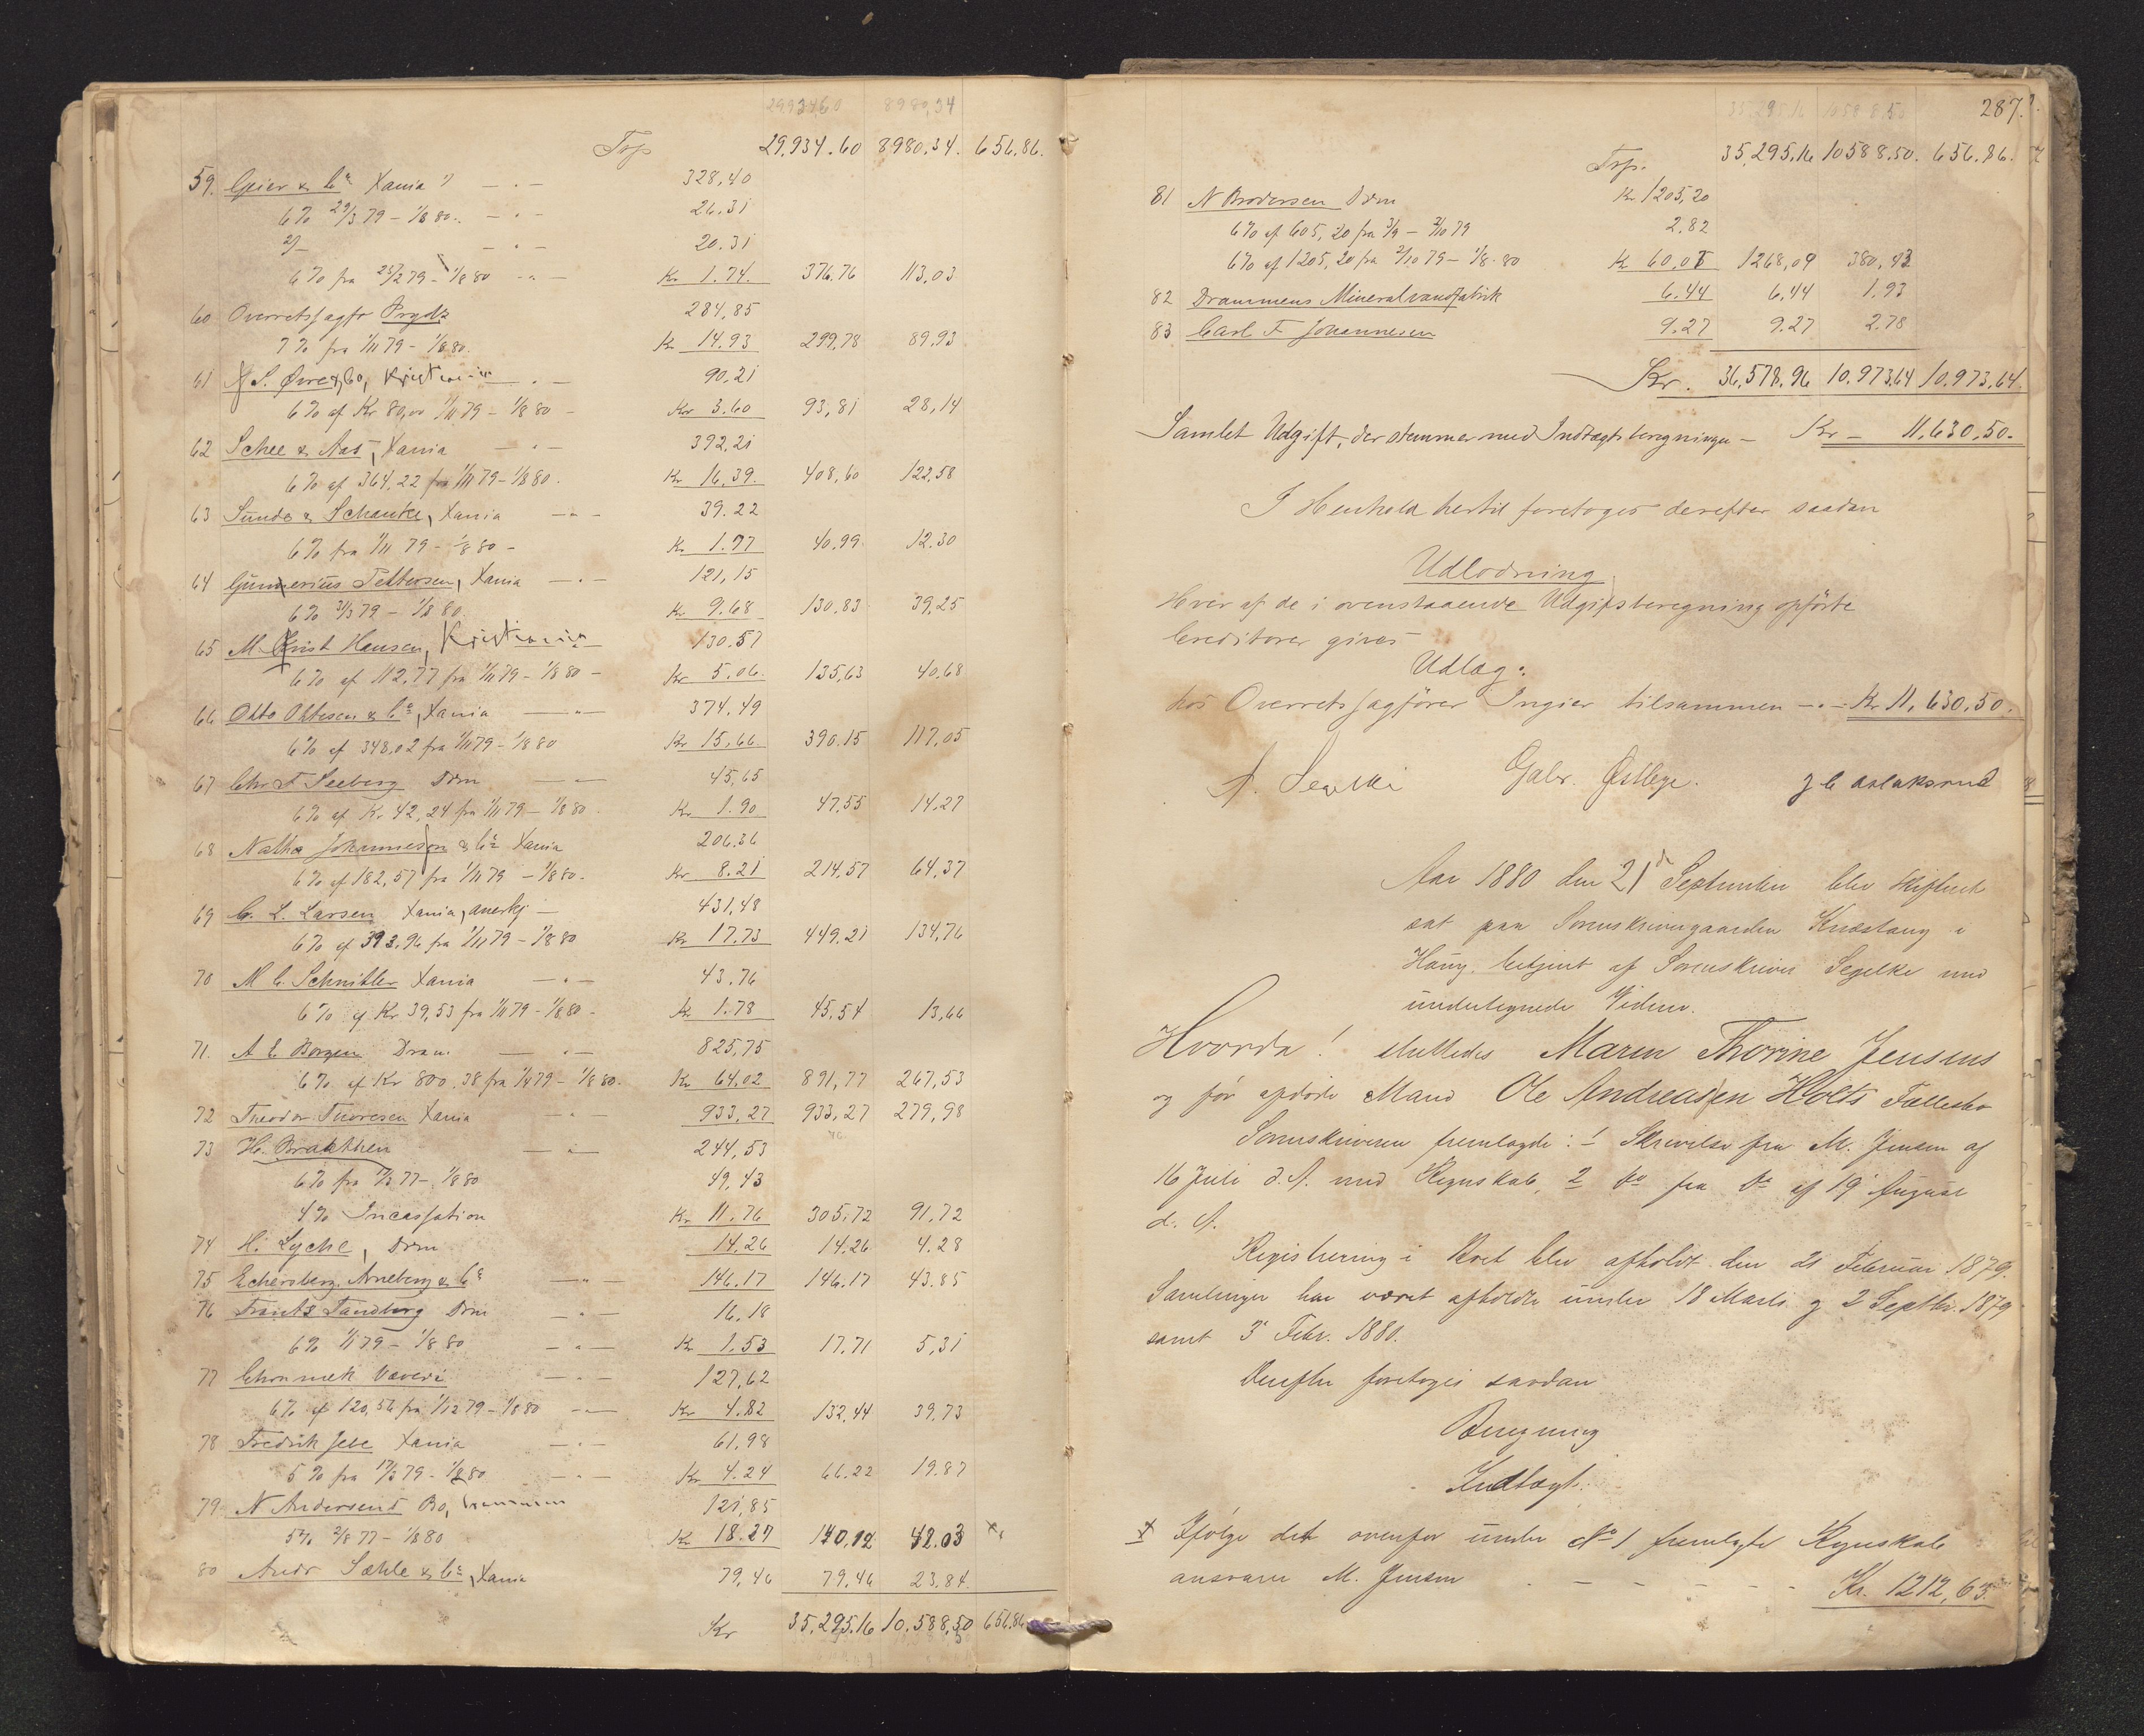 2993460 8980,34
Trsp 29,934.60 8980,34. 656,86.
59. Geier & Co Xania 328,40
6% 29/3 79 – 1/8 80. 26.31
20.31
6% fra 25/2 79 – 1/8 80 Kr 1.74. 376.76 113,03
60 Overretssagfr Prydz 284,85
7% fra 1/11 79 – 1/8 80. Kr 14.93 299,78 89,93
61 S. Øvre & Co, Kristiania 90,21
6% af Kr 80,00 1/11 79 – 1/8 80 – Kr 3.60 93,81 28,14
62 Schee & Aas, Xania 392,21
6% af 364,22 fra 1/11 79 – 1/8 80. Kr 16,39. 408,60 122,58
63 Sunde & Schanke, Xania 39.22
6% fra 1/11 79 – 1/8 80 – Kr 1.77 40,99. 12.30
64 Gunnerius Pettersen, Xania 121,15
6% 31/3 79 – 1/8 80. Kr 9.68 130,83 39,25
65 M. Qvist Hansen, Kristiania 130.57
6% af 112.77 fra 1/11 79 – 1/8 80 – Kr 5.06. 135,63 40,68
66 Otto Ottesen & Co, Xania 374,49
6% af 348,02 fra 1/11 79 – 1/8 80 Kr 15,66 390.15 117,05
67 Chr. F Seeberg Drm 45,65
6% af Kr 42,24 fra 1/11 79 – 1/8 80. Kr 1.90 47,55 14,27
68 Nathe Johannesson & Co Xania 206,36
6% af 182,57 fra 1/11 79 – 1/8 80. Kr 8.21 214,57 64,37
69 C. L. Larsen Xania, anerkj – 431,48
6% af 393.96 fra 1/11 79 – 1/8 80 Kr 17.73 449.21 134,76
70 M C. Schnitler Xania 43.76
6% af Kr 39,53 fra 1/11 79 – 1/8 80 – Kr 1.78 45,54 13,66
71. A E. Borgen Dram. 825,75
6% af Kr 800.38 fra 1/4 79 – 1/8 80. Kr 64,02 891,77 267,53
72 Theodor Thoresen Xania 933,27 933,27 279,98
73 H. Brækkhen 244,53
6% fra 77 – 1/8 80 49,43
4% Incassation Kr 11.76 305,72 91,72
74 H. Lyche, Drm 14,26 14,26 4.28
75 Eckersberg, Arneberg & Co 146.17 146.17 43.85
76 Frants Tandberg Drm 16,18
6% 1/1 79 – 1/8 80 Kr 1.53 17.71 5,31
77 Chra mek Væveri 127,62
6% af 120,56 fra 1/12 79 – 1/8 80 Kr 4.82 132,44 39,73
78 Fredrik Jebe Xania 61,98
5% fra 17/3 79 – 1/8 80 Kr 4.24 66.22 19.87
79 N Andersens Bo, Drammen 121,85
5% 2/8 77 – 1/8 80 Kr 18.27 140,12 42.03
80 Andr Sæhle & Co, Xania 79,46 79,46 23,84.
Kr 35,295.16 10,588,50 656,86
287.
35,295.16 10588.50
Trsp. 35,295.16 10588.50. 656.86.
81 N Brodersen Drm Kr 1205,20
6% af 605,20 fra 3/9 – 2/10 79 2.82
6% af 1205,20 fra 2/10 79 – 1/8 80 Kr 60,07 1268,09 380,43
82 Drammens Mineralvandfabrik 6.44 6,44 1.93
83 Carl F Johannesen 9.27 9.27 2.78
Kr. 36,578.96 10.973,64 10.973,64.
Samlet Udgift, der stemmer med Indtægtsberegningen – Kr – 11,630,50.
I Henhold hertil foretoges derefter saadan
Udlodning
Hver af de i ovenstaaende Udgiftsberegning opførte
Creditorer gives
Udlæg:
hos Overretssagfører Ingier tilsammen – Kr 11,630,50.
A. Segelcke Gabr. Østlege. J C Aslaksrud
Aar 1880 den 21de September blev Skifteret
sat paa Sorenskrivergaarden Knestang i
Haug betjent af Sorenskriver Segelke med
undertegnede Vidner.
Hvorda! sluttedes Maren Thorine Jensens
og før afdøde Mand Ole Andreassen Holts Fællesbo
Sorenskriveren fremlagde: 1 Skrivelse fra M. Jensen af
16 Juli d. A. med Regnskab, 2 do fra do af 19 August
d. A.
Registrering i Boet blev afholdt den 21 Februar 1879.
Samlinger har været afholdte under 18 Marts og 2 Septbr. 1879
samt 3 Febr. 1880.
Derefter foretoges saadan
Beregning
Indtægt.
Ifølge det ovenfor under No 1 fremlagte Regnskab
ansvarer M. Jensen – – – – – Kr. 1212,63.